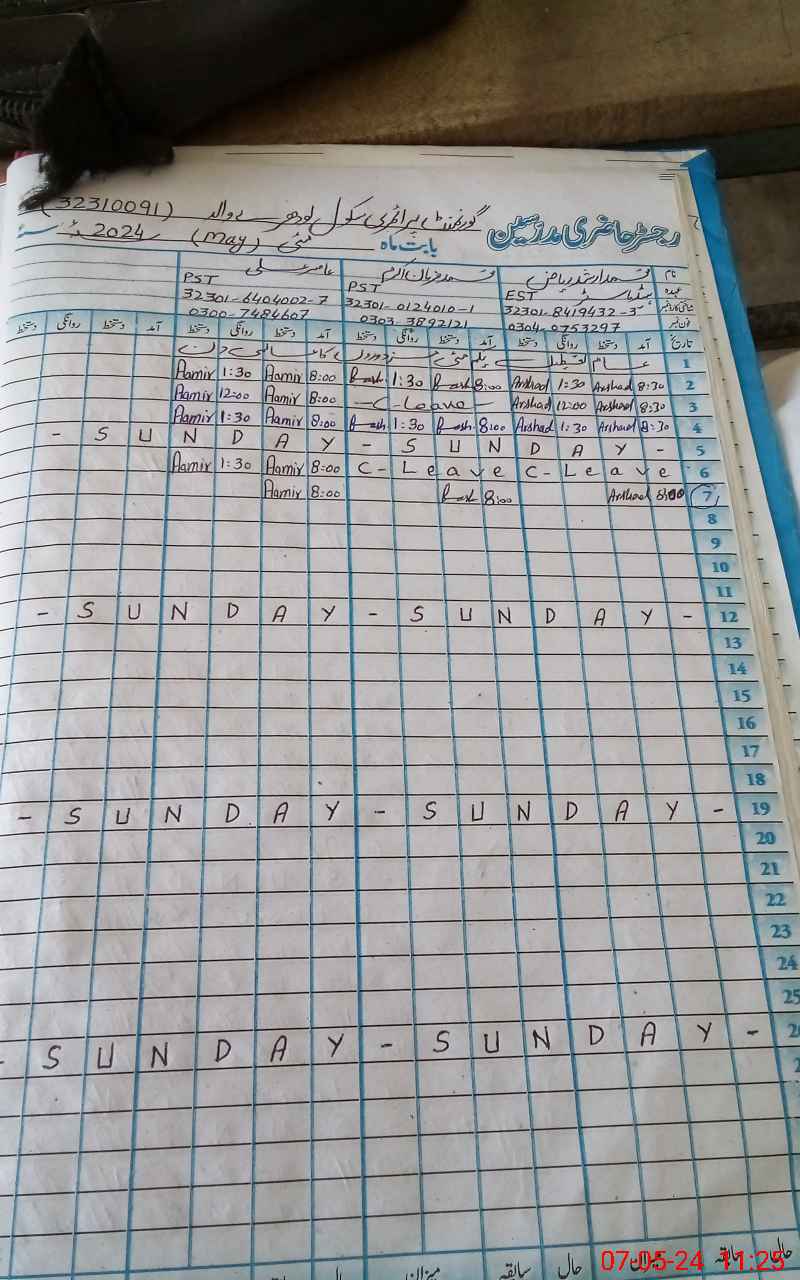 رجسٹر حاضری مدرسین گورنمنٹ پرائمری سکول والہ (32310091)
بابت ماہ مئی (May) 2024
نام محمد ارشد ریاض محمد اکرم عامر علی
عہدہ EST PST PST
32301-8419432-3 32301-0124010-1 32301-6404002-7
فون نمبر 0304-0753297 0303-3892121 0300-7484607
تاریخ آمد دستخط روانگی دستخط آمد دستخط روانگی دستخط آمد دستخط روانگی دستخط آمد دستخط روانگی دستخط
1 عام تعطیل یکم مئی مزدوروں کا عالمی دن
2 8:30 Arshad 1:30 Arshad 8:00 1:30 8:00 Aamir 1:30 Aamir
3 8:30 Arshad 12:00 Arshad - C-Leave - 8:00 Aamir 12:00 Aamir
4 8:30 Arshad 1:30 Arshad 8:00 1:30 8:00 Aamir 1:30 Aamir
- S U N D A Y - S U N D A Y - 5
6 C-Leave C-Leave 8:00 Aamir 1:30 Aamir
7 8:00 Arshad 8:00 8:00 Aamir
8
9
10
11
- S U N D A Y - S U N D A Y - 12
13
14
15
16
17
18
- S U N D A Y - S U N D A Y - 19
20
21
22
23
24
25
- S U N D A Y - S U N D A Y -
حال سابقہ میزان حال سابقہ میزان
07-05-24 11:25